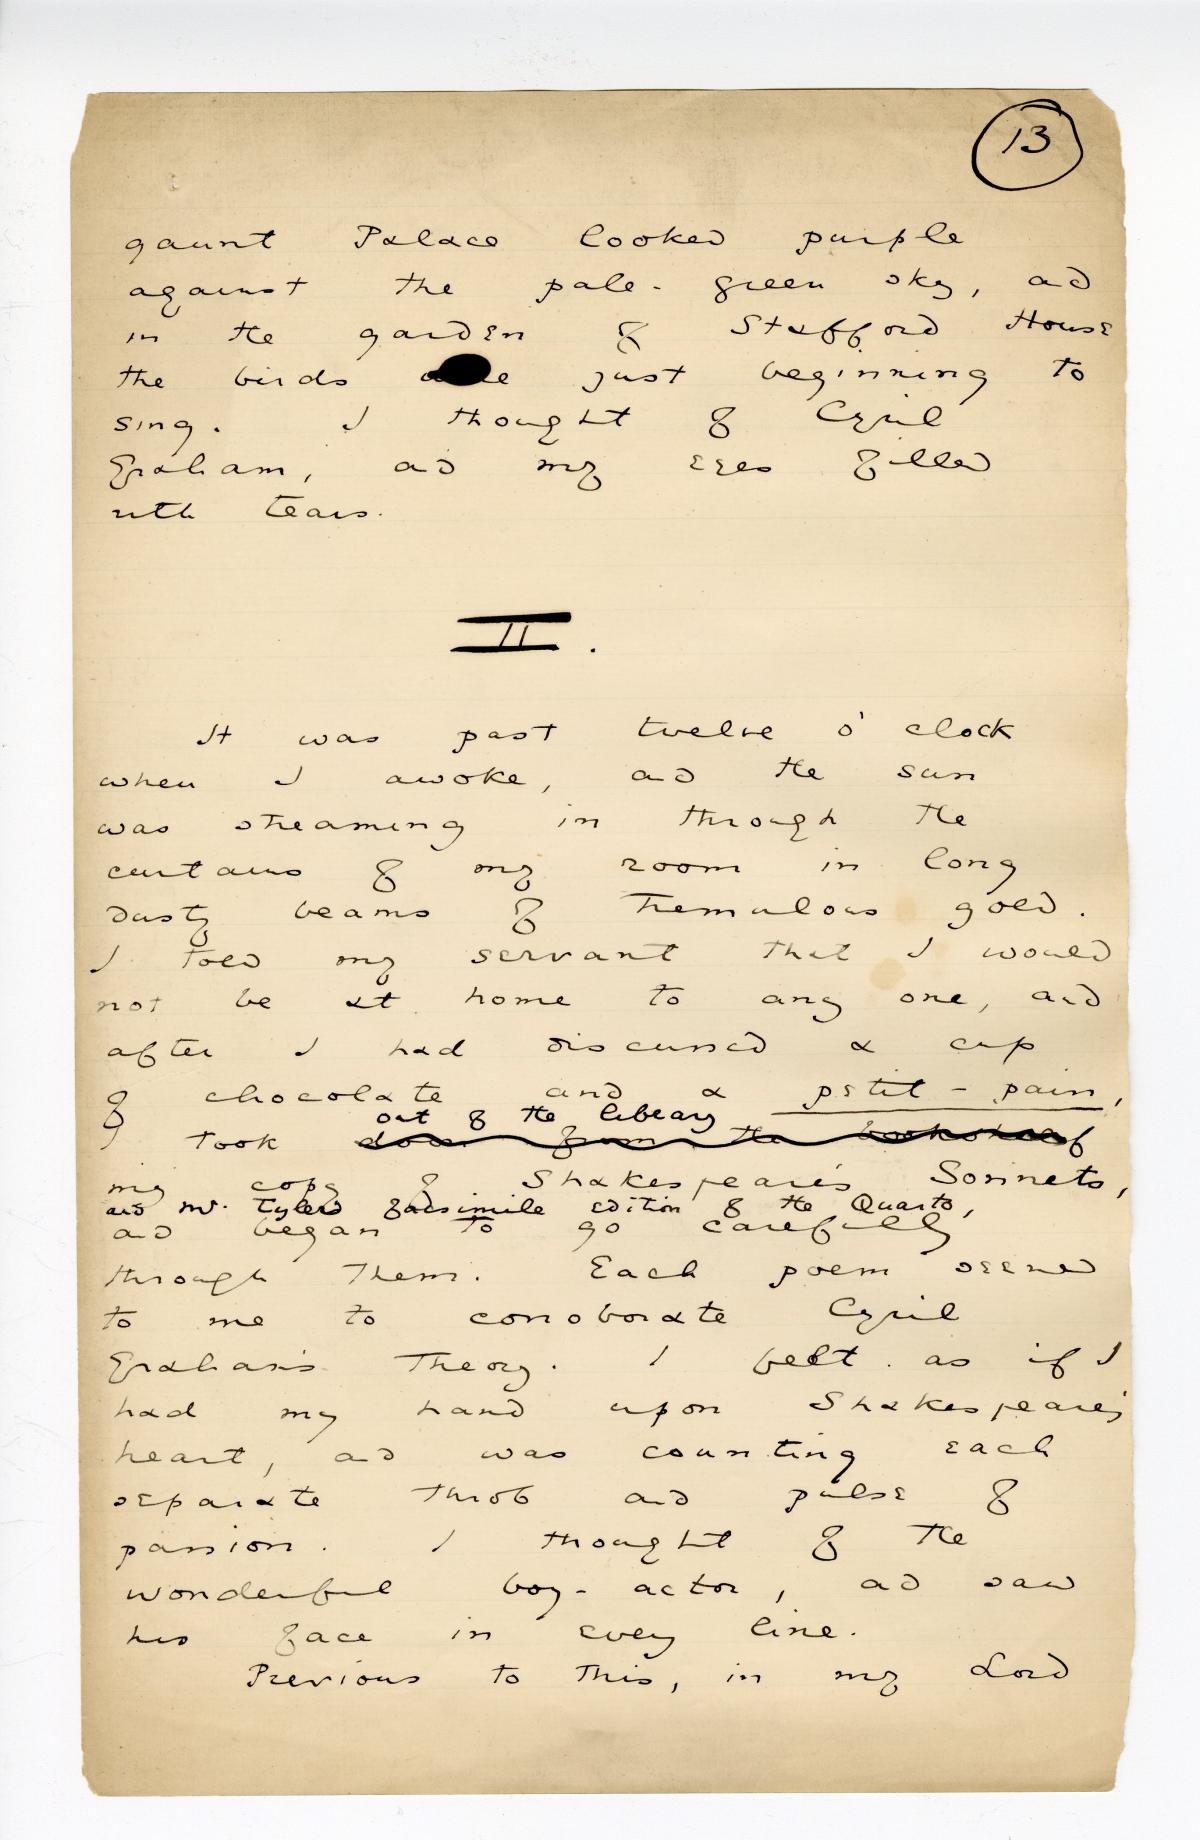 13
gaunt Palace looked purple
against the pale-green sky, and
in the garden of Stafford House
the birds were just beginning to
sing. I thought of Cyril
Graham, and my eyes filled
with tears.
II.
It was past twelve o'clock
when I awoke, and the sun
was streaming in through the
curtains of my room in long
dusty beams of tremulous gold.
I told my servant that I would
not be at home to any one, and
after I had discussed a cup
of chocolate and a petit-pain,
out of the library
I took down from the bookshelf
my copy of Shakespeare's Sonnets,
and Mr. Tyler's facsimile edition of the Quarto,
and began to go carefully
through them. Each poem seemed
to me to corroborate Cyril
Graham's theory. I felt as if I
had my hand upon Shakespeare's
heart, and was counting each
separate throb and pulse of
passion. I thought of the
wonderful boy-actor, and saw
his face in every line.
Previous to this, in my Lord